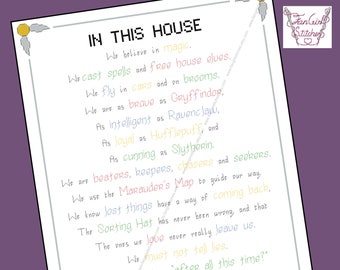 IN THIS HOUSE
We believe in magic.
We cast spells and free house elves.
We fly in cars and on brooms.
We are as brave as Gryffindor,
As intelligent as Ravenclaw,
As loyal as Hufflepuff, and
As cunning as Slytherin.
We are beaters, keepers, chasers and seekers.
We use the Marauder's Map to guide our way.
We know lost things have a way of coming back,
The Sorting Hat has never been wrong, and that
The ones we love never really leave us.
We must not tell lies.
"after all this time?"
FanGirl
Stitches